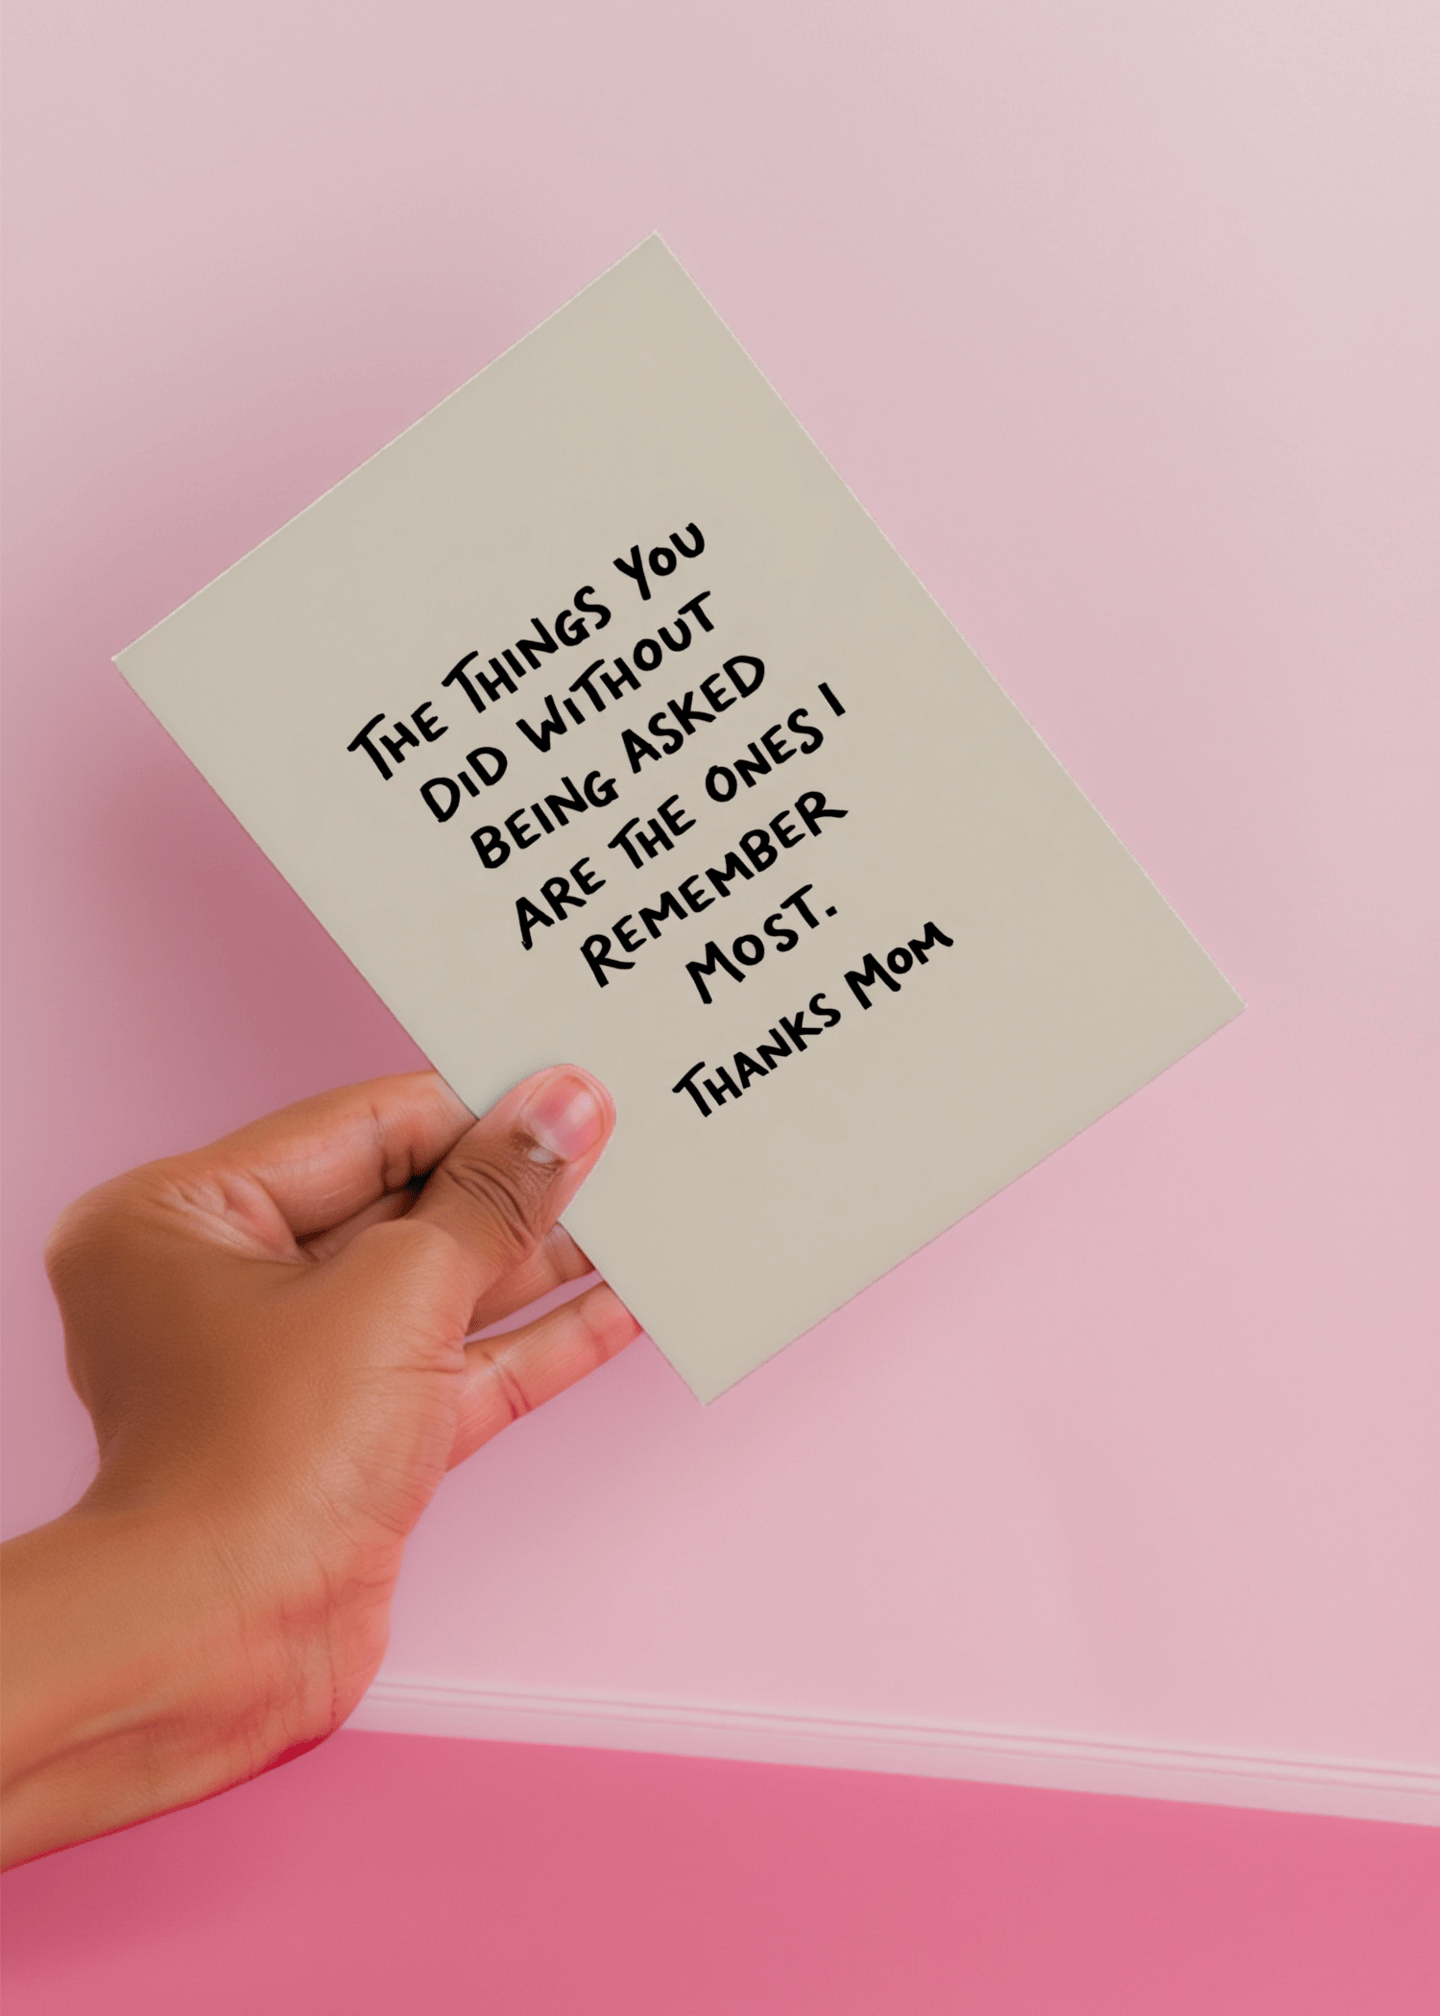 THE THINGS YOU
DID WITHOUT
BEING ASKED
ARE THE ONES I
REMEMBER
MOST.
THANKS MOM